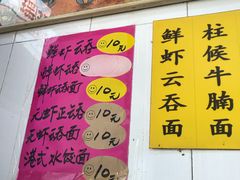 鲜虾云吞 10元
虾云吞
鲜虾云吞面 10元
大虾云吞面 10元
虾云吞面 10元
港式水饺面 10元
柱候牛腩面
鲜虾云吞面